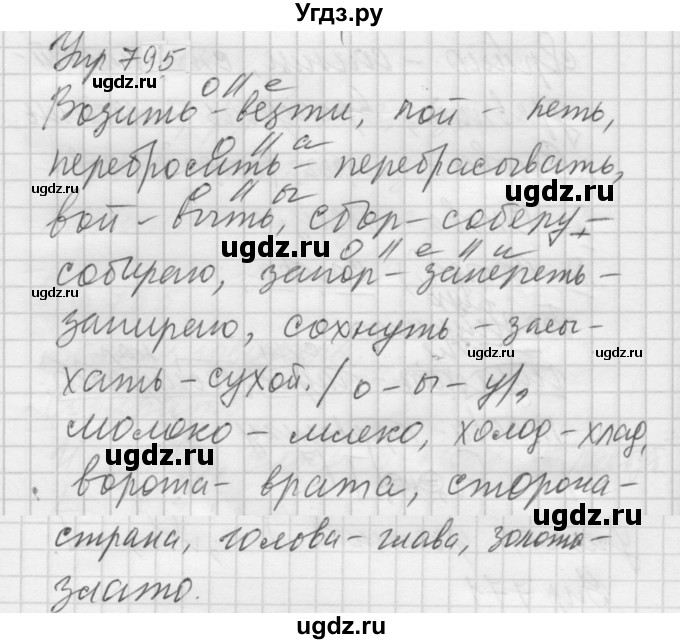 Угдз.ру
Упр 795
ugdz.ru
о // е
Возить - везти, пой - петь,
ugdz.ru
о // а
перебросить - перебрасывать,
ugdz.ru ugdz.ru
о // ы
вой - выть, сбор - соберу -
ugdz.ru
о // е // и
собираю, запор - запереть -
ugdz.ru
запираю, сохнуть - засы-
ugdz.ru
хать - сухой. / о - ы - у/,
молоко - млеко, холод - хлад,
ugdz.ru
ворота - врата, сторона -
ugdz.ru
страна, голова - глава, золото -
злато.
ugdz.ru
ugdz.ru